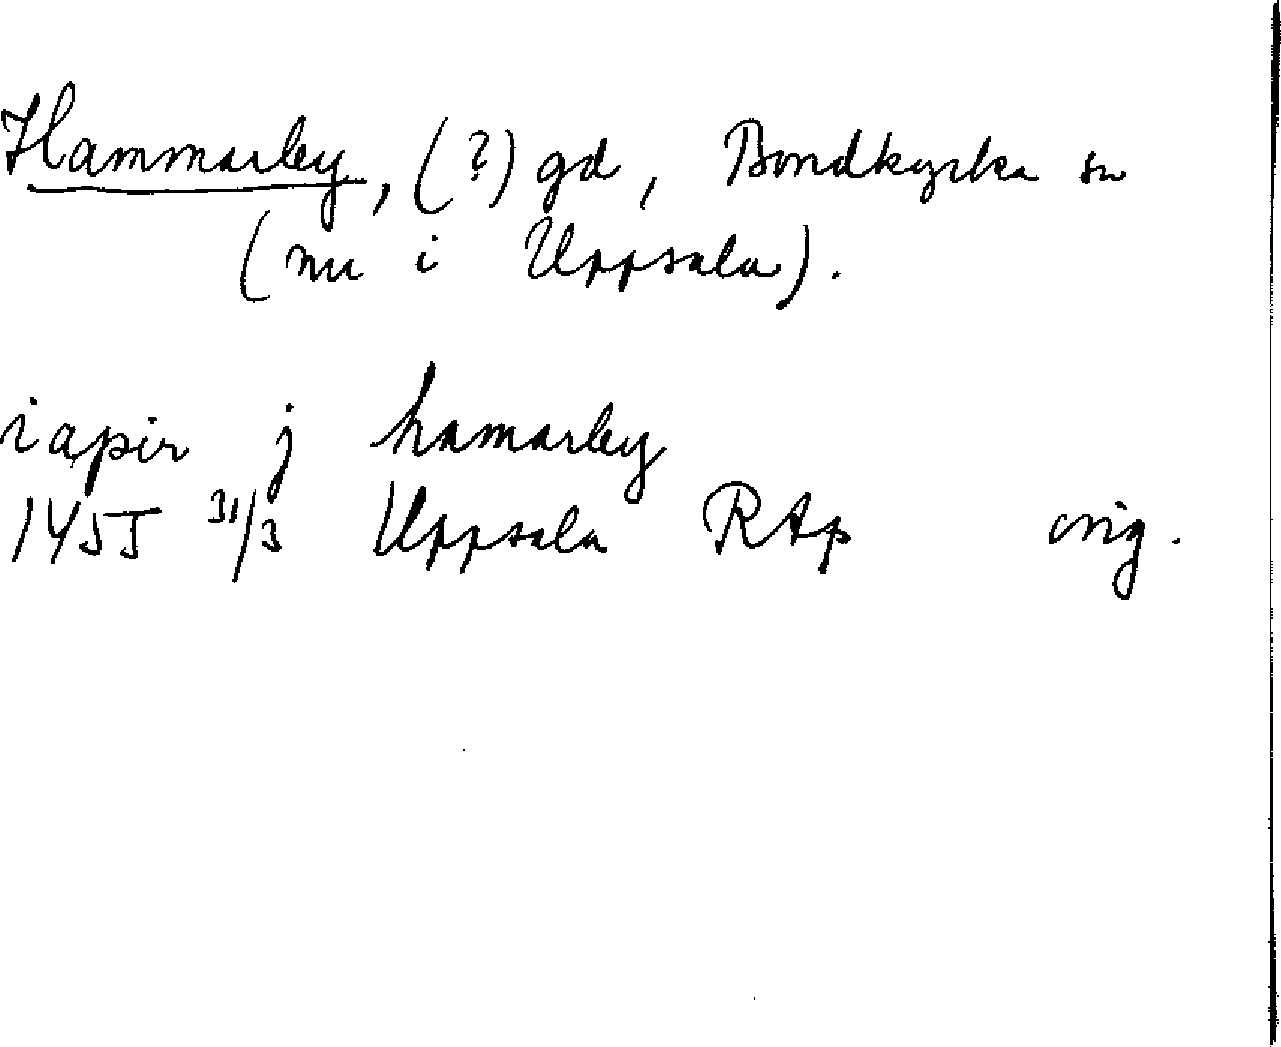 Hammarby, (?) gd, Bondkyrka sn
(nu i Uppsala).
iapir j hamarby
1455 31/3 Uppsala RAp orig.